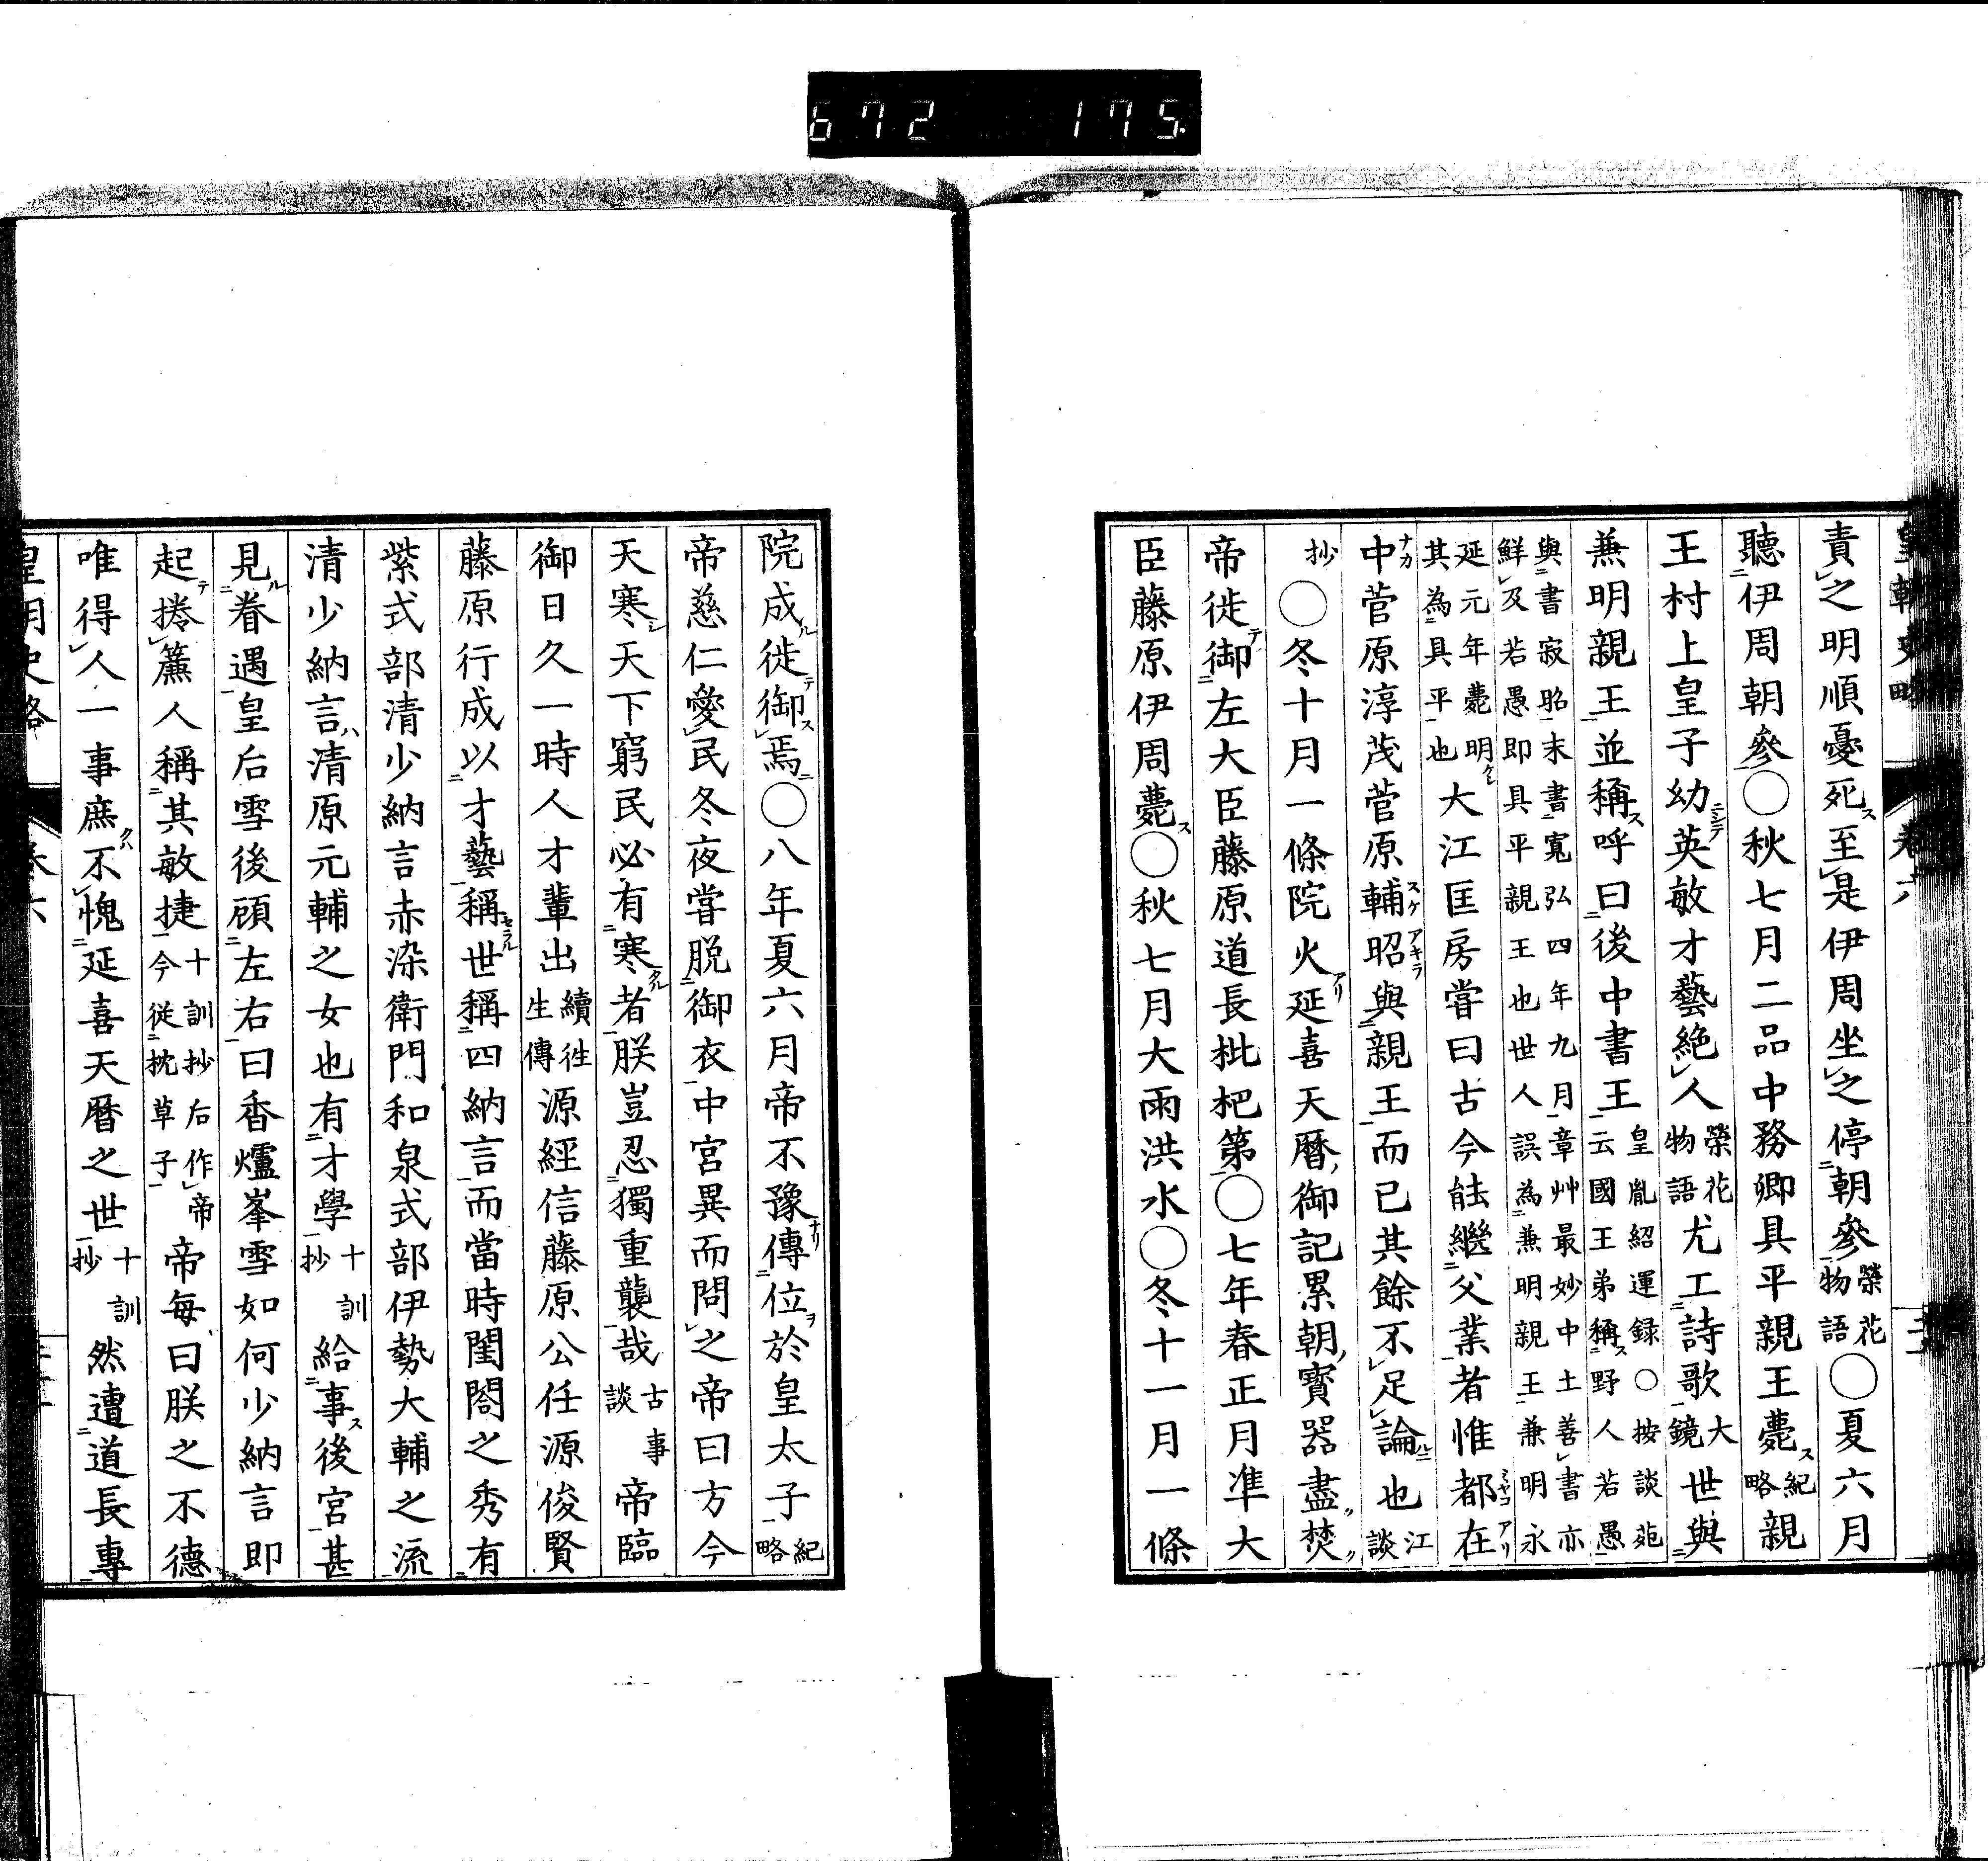 672 175.
皇朝史略 卷六
責之明順憂死至是伊周坐之停朝參榮花物語○夏六月
聽伊周朝參○秋七月二品中務卿具平親王薨紀略親
王村上皇子幼英敏才藝絶人榮花物語尤工詩歌大鏡世與
兼明親王並稱呼曰後中書王皇胤紹運録○按談苑云國王弟稱野人若愚
與書寂昭末書寛弘四年九月章艸最妙中土善書亦鮮及若愚即具平親王也世人誤為兼明親王兼明永
延元年薨明其為具平也大江匡房嘗曰古今能繼父業者惟都在
中菅原淳茂菅原輔昭與親王而已其餘不足論也江談
抄○冬十月一條院火延喜天暦御記累朝寳器盡焚
帝徙御左大臣藤原道長枇杷第○七年春正月準大
臣藤原伊周薨○秋七月大雨洪水○冬十一月一條
院成徙御焉○八年夏六月帝不豫傳位於皇太子紀略
帝慈仁愛民冬夜嘗脱御衣中宮異而問之帝曰方今
天寒天下窮民必有寒者朕豈忍獨重襲哉古事談帝臨
御日久一時人才輩出續往生傳源經信藤原公任源俊賢
藤原行成以才藝稱世稱四納言而當時閨閤之秀有
紫式部清少納言赤染衛門和泉式部伊勢大輔之流
清少納言清原元輔之女也有才學十訓抄給事後宮甚
見眷遇皇后雪後頎左右曰香爐峯雪如何少納言即
起捲簾人稱其敏捷十訓抄后作帝今從枕草子帝每曰朕之不德
唯得人一事庶不愧延喜天暦之世十訓抄然遭道長專
皇朝史略 卷六